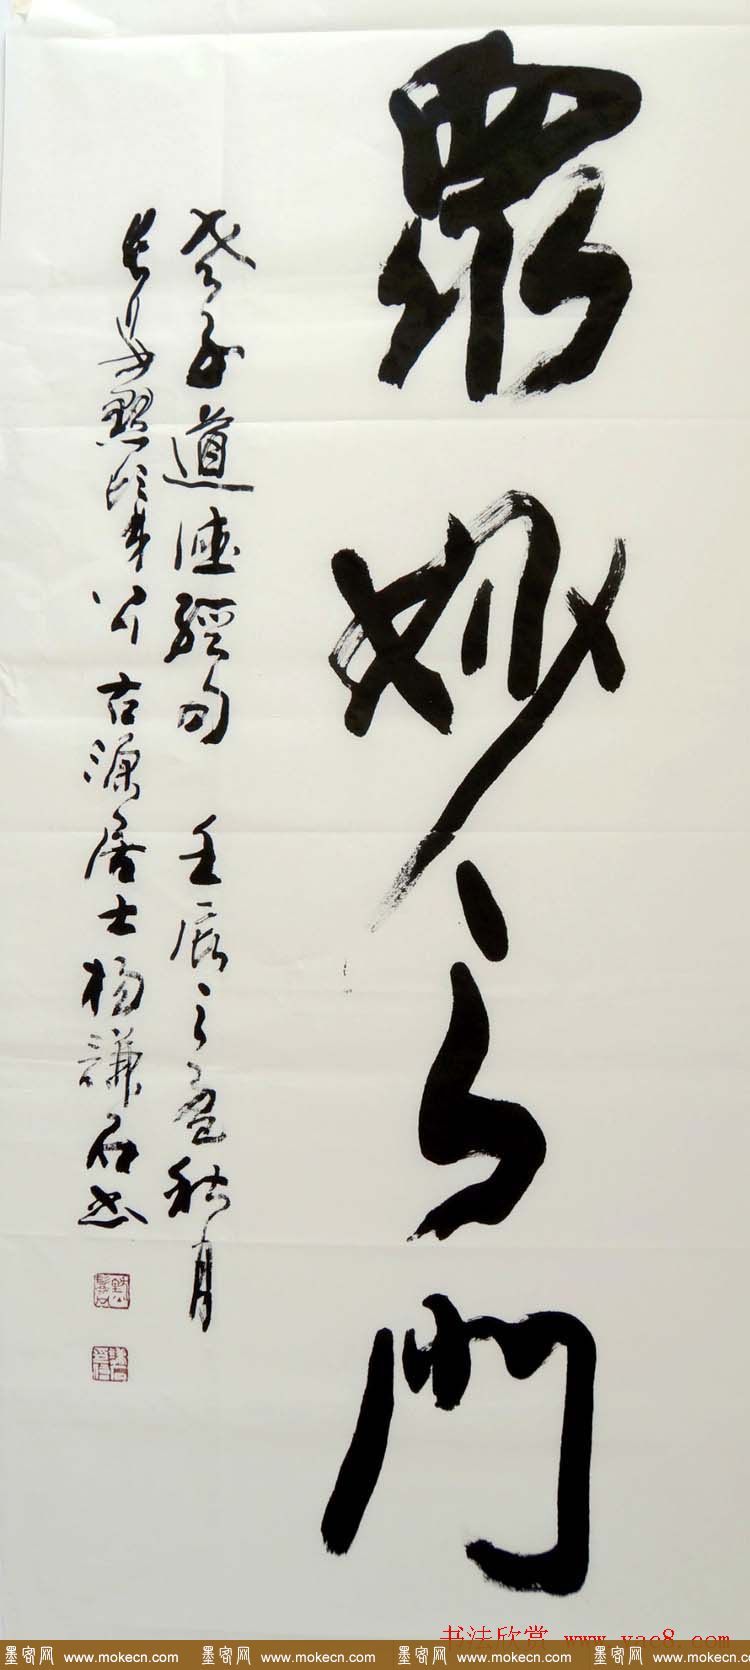 眾妙之門
老子道德經句 壬辰之孟秋月
古源居士楊謙
书法欣赏 www.yac8.com
墨客网 www.mokecn.com 墨客网 www.mokecn.com 墨客网 www.mokecn.com 墨客网 www.mokecn.com